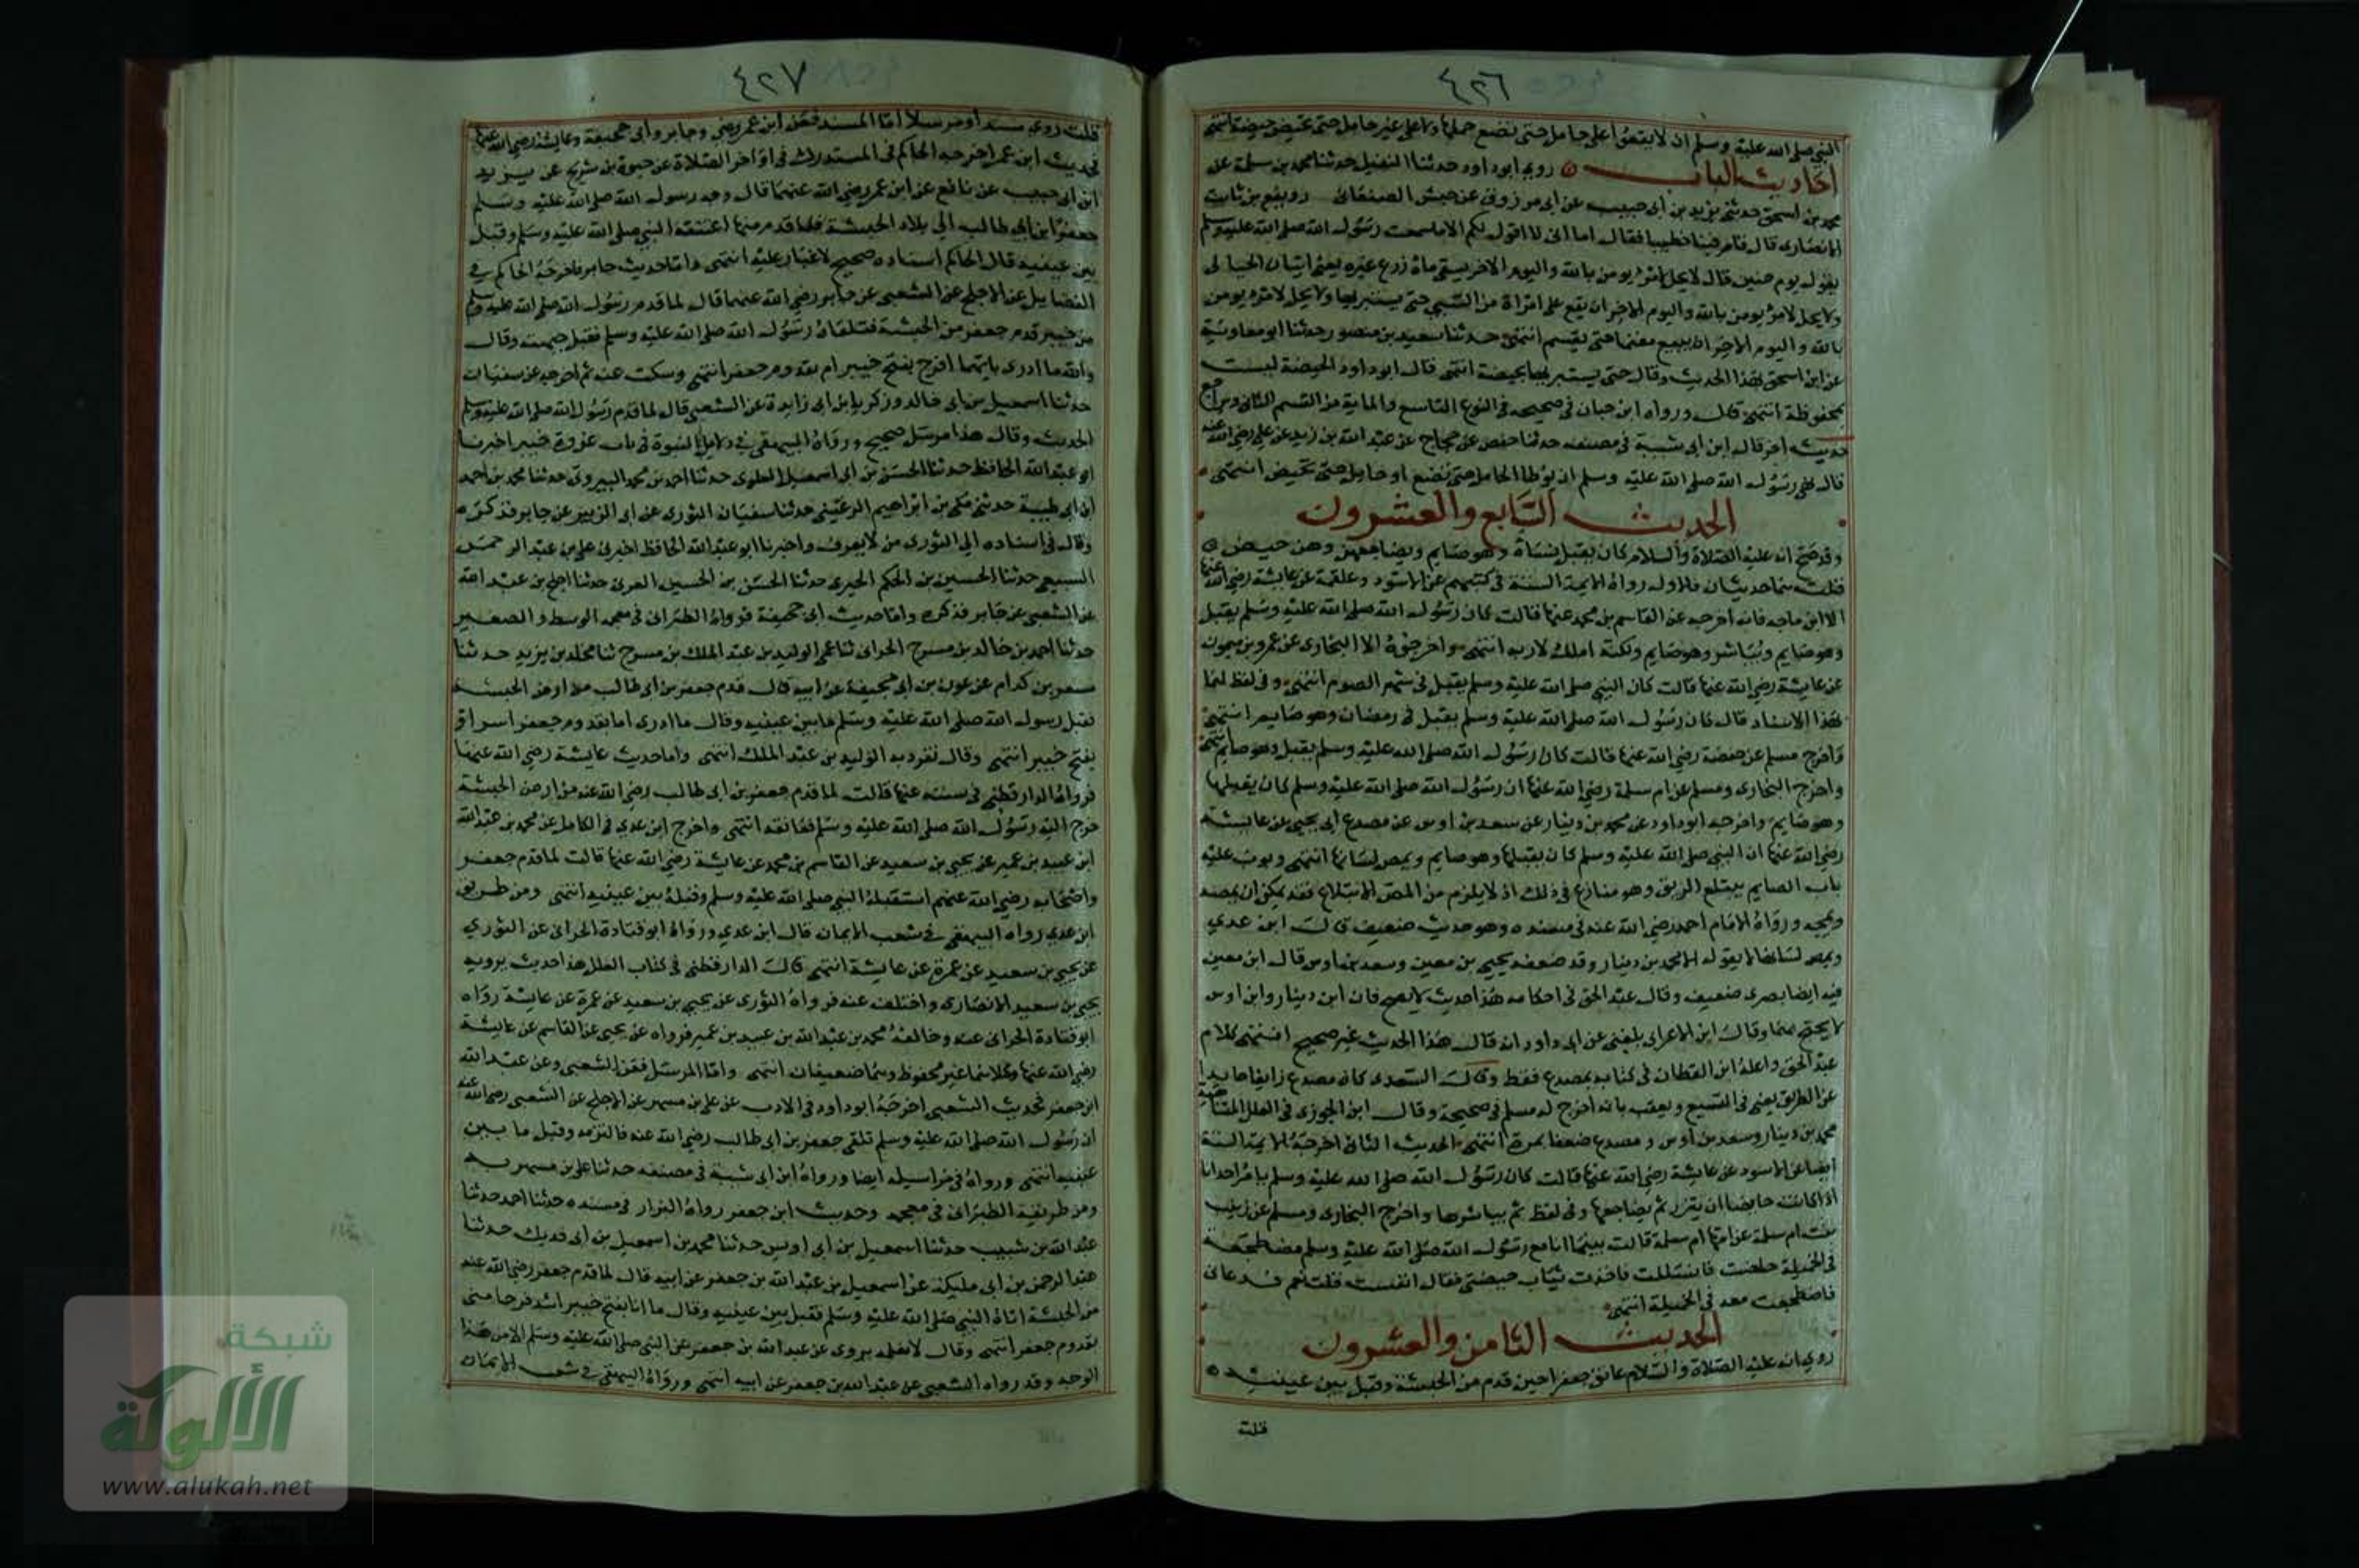 ٤٢٦
النبي صلى الله عليه وسلم ان لا يقعوا على حامل حتى تضع حملها ولا على غير حامل حتى تحيض حيضة انتهى
احاديث الباب روى ابو داود حدثنا النفيلي حدثنا محمد بن سلمة عن
محمد بن اسحق حدثني يزيد بن ابي حبيب عن ابى مرزوق عن حنش الصنعانى رويفع بن ثابت
الانصارى قال قام فينا خطيبا فقال اما انى لا اقول لكم الا ما سمعت رسول الله صلى الله عليه وسلم
يقول يوم حنين قال لا يحل لامرئ يومن بالله واليوم الاخر يسقى ماءه زرع غيره يعنى اتيان الحبالى
ولا يحل لامرئ يومن بالله واليوم الاخر ان يقع على امراة من السبي حتى يستبريها ولا يحل لامرئ يومن
بالله واليوم الاخر ان يبيع مغنما حتى يقسم انتهى حدثنا سعيد بن منصور حدثنا ابو معاوية
عن ابن اسحق بهذا الحديث وقال حتى يستبريها بحيضة انتهى قال ابو داود الحيضة ليست
بمحفوظة انتهى قلت ورواه ابن حبان فى صحيحه فى النوع التاسع والماية من القسم الثانى
حديث اخر قال ابن ابى شيبة فى مصنفه حدثنا حفص عن حجاج عن عبد الله بن زيد عن علي رضى الله عنه
قال نهى رسول الله صلى الله عليه وسلم ان توطا الحامل حتى تضع او حايل حتى تحيض انتهى
الحديث السابع والعشرون
وقد صح انه عليه الصلاة والسلام كان يقبل نساءه وهو صايم ويضاجعهن وهن حيض
قلت هما حديثان فالاول رواه الايمة الستة فى كتبهم عن الاسود وعلقمة عن عايشة رضى الله عنها
الا ابن ماجه فانه اخرجه عن القاسم بن محمد عنها قالت كان رسول الله صلى الله عليه وسلم يقبل
وهو صايم ويباشر وهو صايم ولكنه املك لاربه انتهى واخرجوه الا البخارى عن عمرو بن ميمون
عن عايشة رضى الله عنها قالت كان النبي صلى الله عليه وسلم يقبل فى شهر الصوم انتهى وفى لفظ لهما
بهذا الاسناد قال كان رسول الله صلى الله عليه وسلم يقبل فى رمضان وهو صايم انتهى
واخرج مسلم عن حفصة رضى الله عنها قالت كان رسول الله صلى الله عليه وسلم يقبل وهو صايم انتهى
واخرج البخارى ومسلم عن ام سلمة رضى الله عنها ان رسول الله صلى الله عليه وسلم كان يقبلها
وهو صايم واخرجه ابو داود عن محمد بن دينار عن سعد بن اوس عن مصدع ابى يحيى عن عايشة
رضى الله عنها ان النبي صلى الله عليه وسلم كان يقبلها وهو صايم ويمص لسانها انتهى وبوب عليه
باب الصايم يبتلع الريق وهو منازع فى ذلك اذ لا يلزم من المص الابتلاع فقد يمكن ان يمصه
ويمجه ورواه الامام احمد رضى الله عنه فى مسنده وهو حديث ضعيف قال ابن عدي
ويمص لسانها لا يقوله الا محمد بن دينار وقد ضعفه يحيى بن معين وسعد بن اوس قال ابن معين
فيه ايضا بصرى ضعيف وقال عبد الحق فى احكامه هذا حديث لا يصح فان ابن دينار وابن اوس
لا يحتج بهما وقال ابن الاعرابى بلغنى عن ابى داود انه قال هذا الحديث غير صحيح انتهى كلام
عبد الحق واعله ابن القطان فى كتابه بمصدع فقط وقال السعدى كان مصدع زايغا حايدا
عن الطريق يعنى فى التشيع ويعقب بانه اخرج له مسلم فى صحيحه وقال ابن الجوزى فى العلل المتناهية
محمد بن دينار وسعد بن اوس ومصدع ضعفا بمرة انتهى الحديث الثانى اخرجه الايمة الستة
ايضا عن الاسود عن عايشة رضى الله عنها قالت كان رسول الله صلى الله عليه وسلم يامر احدانا
اذا كانت حايضا ان يتزر ثم يضاجعها وفى لفظ ثم يباشرها واخرج البخارى ومسلم عن زينب
بنت ام سلمة عن امها ام سلمة قالت بينما انا مع رسول الله صلى الله عليه وسلم مضطجعة
فى الخميلة حضت فانسللت فاخذت ثياب حيضتى فقال انفست قلت نعم فدعانى
فاضطجعت معه فى الخميلة انتهى
الحديث الثامن والعشرون
روى انه عليه الصلاة والسلام عانق جعفرا حين قدم من الحبشة وقبل بين عينيه
قلت
٤٢٧
قلت روى مسندا ومرسلا اما المسند فعن ابن عمر رضى وجابر وابى جحيفة وعايشة رضى الله عنها
فحديث ابن عمر اخرجه الحاكم فى المستدرك فى اواخر الصلاة عن حيوة بن شريح عن يزيد
ابن ابى حبيب عن نافع عن ابن عمر رضى الله عنهما قال وجه رسول الله صلى الله عليه وسلم
جعفر ابن ابى طالب الى بلاد الحبشة فلما قدم منها اعتنقه النبي صلى الله عليه وسلم وقبل
بين عينيه قال الحاكم اسناده صحيح لا غبار عليه انتهى واما حديث جابر فاخرجه الحاكم فى
الفضايل عن الاجلح عن الشعبى عن جابر رضى الله عنهما قال لما قدم رسول الله صلى الله عليه وسلم
من خيبر قدم جعفر من الحبشة فتلقاه رسول الله صلى الله عليه وسلم فقبل جبهته وقال
والله ما ادرى بايهما افرح بفتح خيبر ام بقدوم جعفر انتهى وسكت عنه ثم اخرجه عن سفيان
حدثنا اسمعيل بن ابى خالد وزكريا بن ابى زايدة عن الشعبى قال لما قدم رسول الله صلى الله عليه وسلم
الحديث وقال هذا مرسل صحيح ورواه البيهقى فى دلايل النبوة فى باب غزوة خيبر اخبرنا
ابو عبد الله الحافظ حدثنا الحسن بن ابى اسمعيل العلوى حدثنا احمد بن محمد البيروتى حدثنا محمد بن احمد
ابن ابى طيبة حدثنى مكى بن ابراهيم الرعينى حدثنا سفيان الثورى عن ابى الزبير عن جابر فذكره
وقال فى اسناده الى الثورى من لا يعرف واخبرنا ابو عبد الله الحافظ اخبرنى على بن عبد الرحمن
السبيعى حدثنا الحسين بن الحكم الحبرى حدثنا الحسن بن الحسين العرنى حدثنا اجلح بن عبد الله
عن الشعبى عن جابر فذكره واما حديث ابى جحيفة فرواه الطبرانى فى معجمه الوسط والصغير
حدثنا احمد بن خالد بن مسرح الحرانى ثنا عمى الوليد بن عبد الملك بن مسرح ثنا مخلد بن يزيد حدثنا
مسعر بن كدام عن عون بن ابى جحيفة عن ابيه قال قدم جعفر بن ابى طالب من ارض الحبشة
فقبل رسول الله صلى الله عليه وسلم ما بين عينيه وقال ما ادرى انا بقدوم جعفر اسر او
بفتح خيبر انتهى وقال تفرد به الوليد بن عبد الملك انتهى واما حديث عايشة رضى الله عنها
فرواه الدارقطنى فى سننه عنها قالت لما قدم جعفر بن ابى طالب رضى الله عنه من ارض الحبشة
خرج اليه رسول الله صلى الله عليه وسلم فعانقه انتهى واخرج ابن عدي فى الكامل عن محمد بن عبد الله
ابن عبيد بن عمير عن يحيى بن سعيد عن القاسم بن محمد عن عايشة رضى الله عنها قالت لما قدم جعفر
واصحابه رضى الله عنهم استقبله النبي صلى الله عليه وسلم وقبله بين عينيه انتهى ومن طريق
ابن عدي رواه البيهقى فى شعب الايمان قال ابن عدي ورواه ابو قتادة الحرانى عن الثوري
عن يحيى بن سعيد عن عمرة عن عايشة انتهى قال الدارقطنى فى كتاب العلل هذا حديث يرويه
يحيى بن سعيد الانصارى واختلف عنه فرواه الثورى عن يحيى بن سعيد عن عمرة عن عايشة رواه
ابو قتادة الحرانى عنه وخالفه محمد بن عبد الله بن عبيد بن عمير فرواه عن يحيى عن القاسم عن عايشة
رضى الله عنها وكلاهما غير محفوظ وهما ضعيفان انتهى واما المرسل فعن الشعبى وعن عبد الله
ابن جعفر فحديث الشعبى اخرجه ابو داود فى الادب عن على بن مسهر عن الاجلح عن الشعبى رضى الله عنه
ان رسول الله صلى الله عليه وسلم تلقى جعفر بن ابى طالب رضى الله عنه فالتزمه وقبل ما بين
عينيه انتهى ورواه فى مراسيله ايضا ورواه ابن ابى شيبة فى مصنفه حدثنا على بن مسهر به
ومن طريقه الطبرانى فى معجمه وحديث ابن جعفر رواه البزار فى مسنده حدثنا احمد حدثنا
عبد الله بن شبيب حدثنا اسمعيل بن ابى اويس حدثنا محمد بن اسمعيل بن ابى فديك حدثنا
عبد الرحمن بن ابى مليكة عن اسمعيل بن عبد الله بن جعفر عن ابيه قال لما قدم جعفر رضى الله عنه
من الحبشة اتاه النبي صلى الله عليه وسلم فقبل بين عينيه وقال ما انا بفتح خيبر اشد فرحا منى
بقدوم جعفر انتهى وقال لا نعلمه يروى عن عبد الله بن جعفر عن النبي صلى الله عليه وسلم الا من هذا
الوجه وقد رواه الشعبى عن عبد الله بن جعفر عن ابيه انتهى ورواه البيهقى فى شعب الايمان
شبكة
الألوكة
www.alukah.net